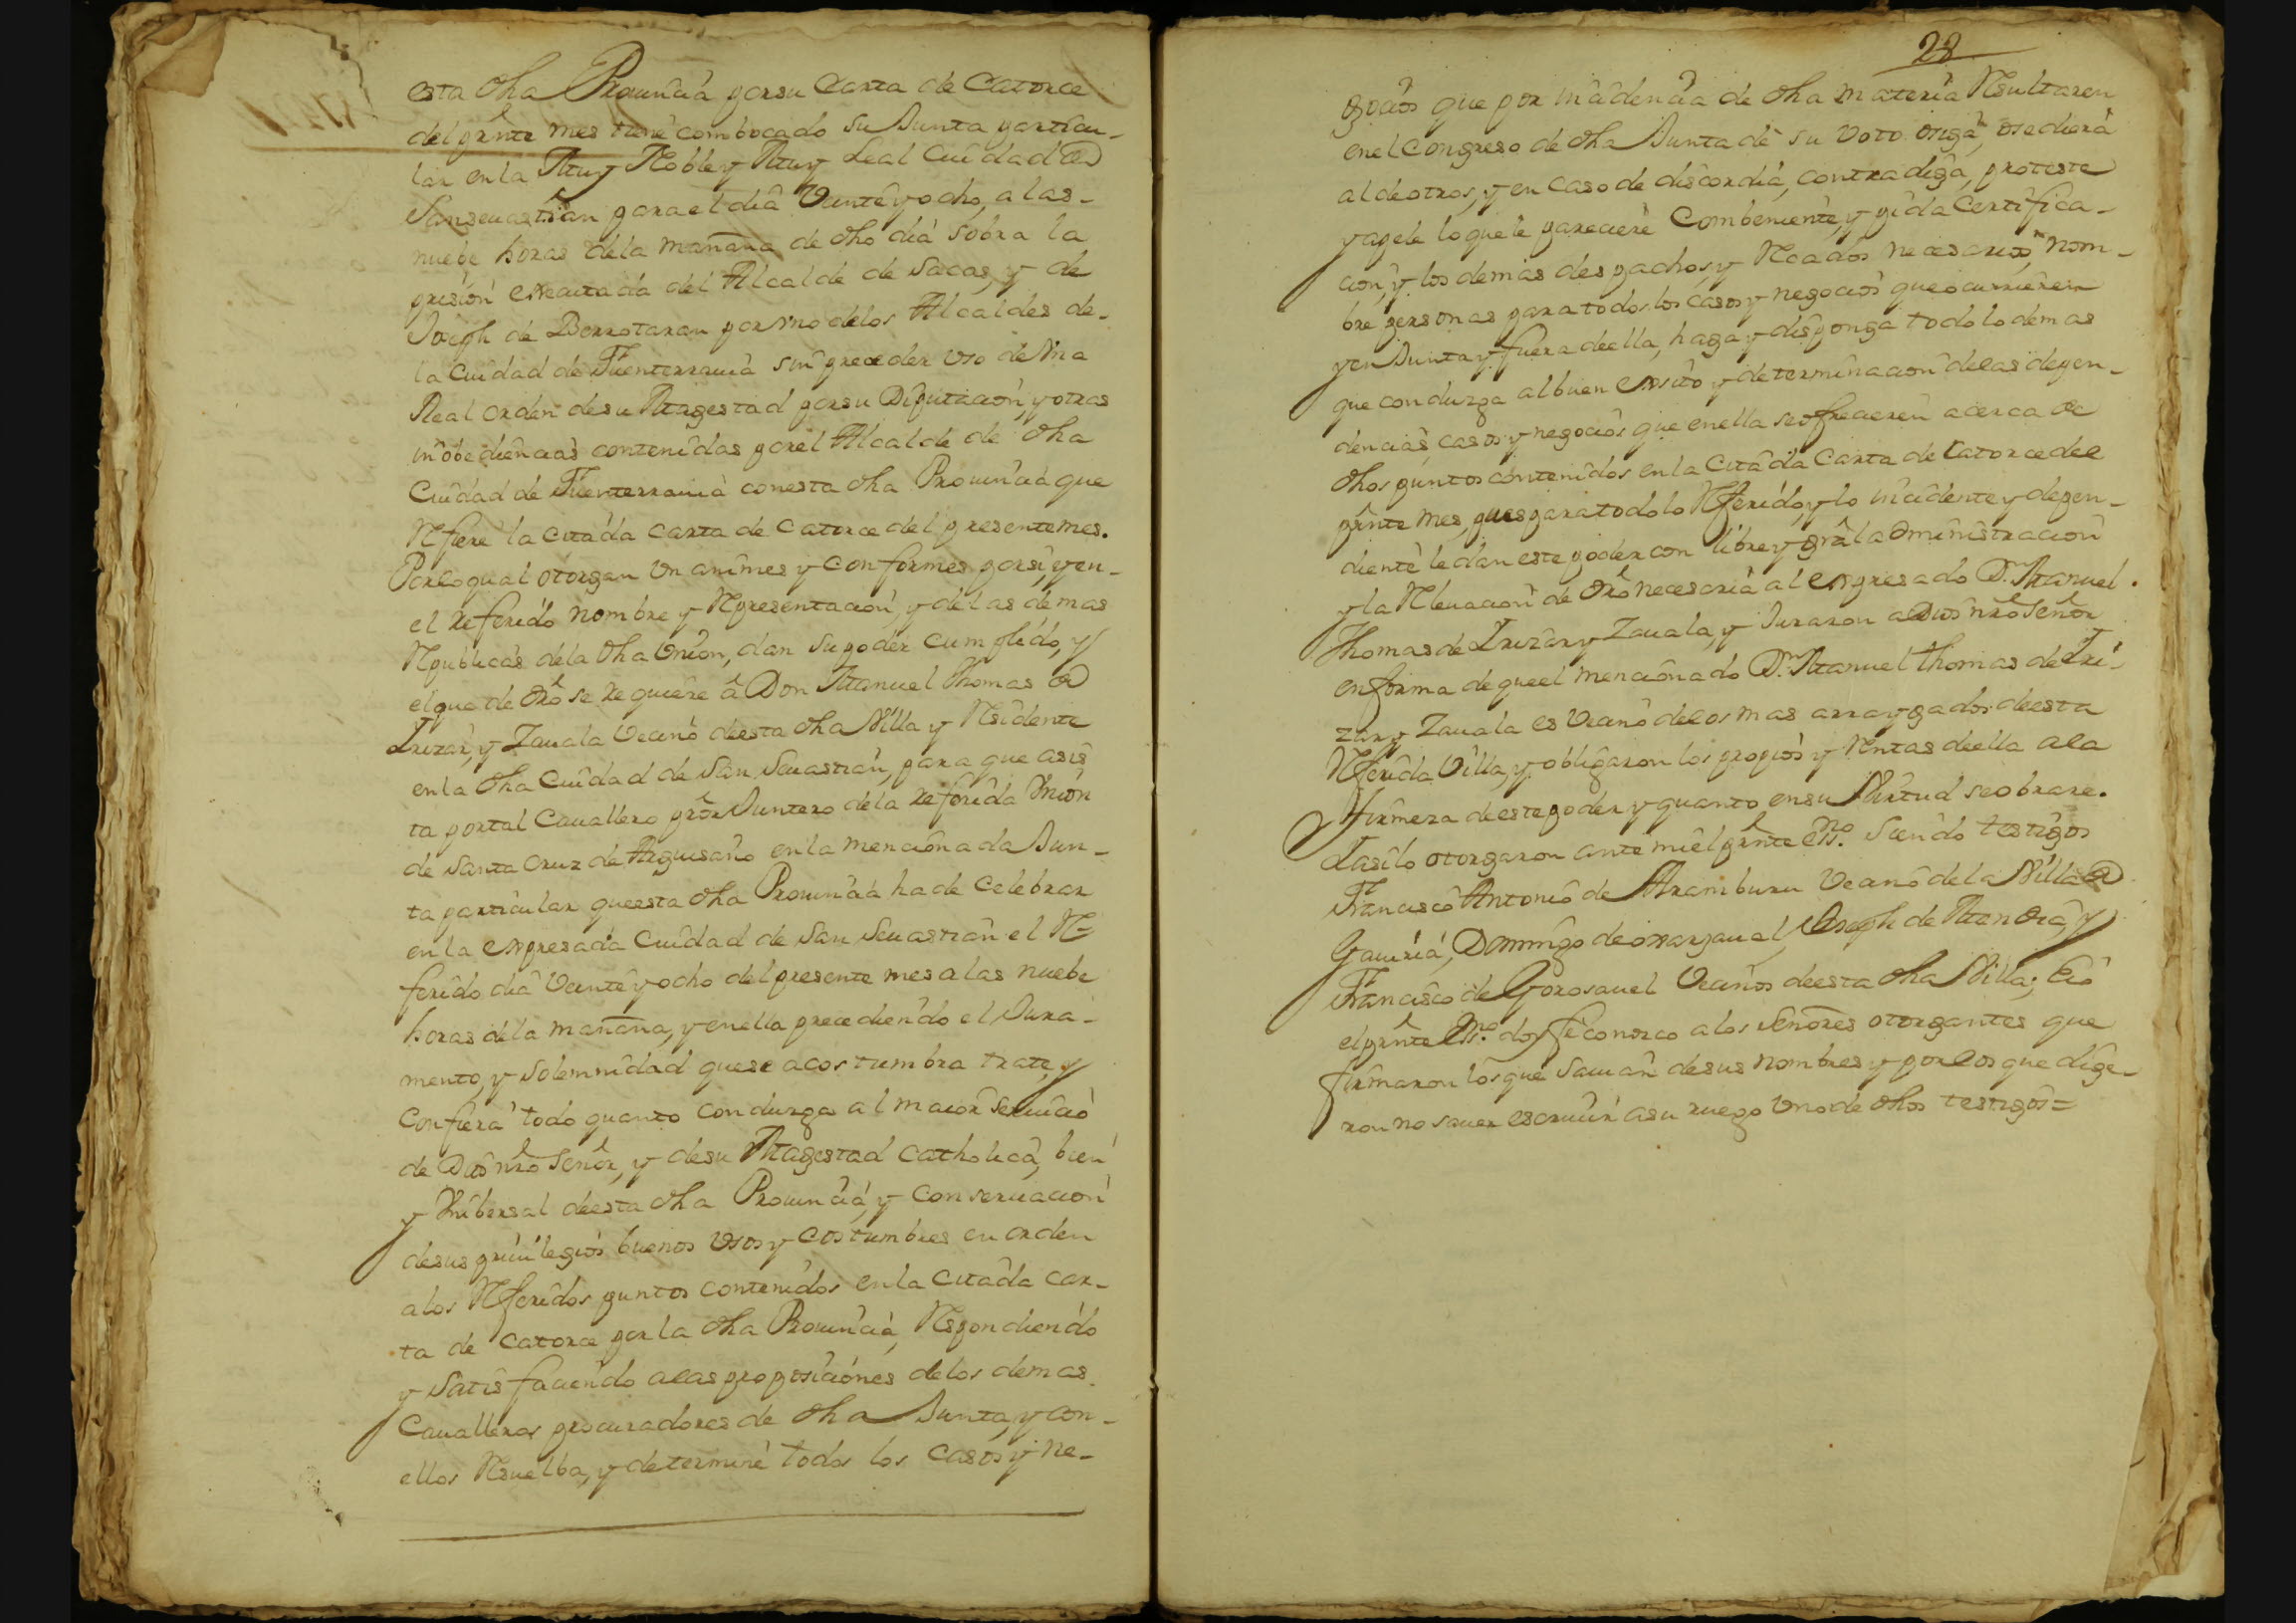 esta dha Prouinçia por su Carta de Catorce
del prnte mes tiene combocado su Junta particu-
lar en la Muy Noble y Muy Leal Ciudad de
Sanseuastian para el dia Veinte y ocho, a las
nuebe horas de la mañana de dho dia sobra la
prision executada del Alcalde de Sacas, y de
Joseph de Berrotaran por vno de los Alcaldes de
la Ciudad de Fuenterrauia sin preceder vso de vna
Real orden de su Magestad por su Diputacion, y otras
inobediencias contenidas por el Alcalde de dha
Ciudad de Fuenterrauia con esta dha Prouinçia que
Refiere la citada carta de Catorce del presente mes.
Por lo qual otorgan Vnanimes y Conformes por si, y en
el referido nombre y Representacion, y de las demas
Republicas de la dha Vnion, dan su poder cumplido, y
el que de dro se requiere â Don Manuel Thomas de
Irizar, y Zauala Vecino de esta dha Villa y Residente
en la dha Ciudad de San Seuastian, para que asis
ta por tal Cauallero prôr Juntero de la referida Vnion
de Santa Cruz de Arguisano en la mencionada Jun-
ta particular que esta dha Prouinçia ha de Celebrar
en la expresada Ciudad de San Seuastian el Re
ferido dia Veinte y ocho del presente mes a las nuebe
horas de la mañana, y en ella precediendo el Jura-
mento, y Solemnidad que se acostumbra trate, y
Confiera todo quanto conduzga al maior Seruicio
de Dios nro Señor, y de su Magestad Catholica, bien
y Vnibersal de esta dha Prouinçia, y Conseruacion
de sus priuilegios buenos Vsos y Costumbres en orden
a los Referidos puntos contenidos en la Citada car-
ta de Catorce por la dha Prouinçia, Respondiendo
y Satisfaciendo a las proposiciones de los demas
Caualleros procuradores de dha Junta, y con-
ellos Resuelba, y determine todos los casos y ne-
28
gocios que por inçidençia de dha materia Resultaren
en el Congreso de dha Junta dè su Voto o siga, o se diera
al de otros, y en caso de discordia, contradiga, proteste
y apele lo que le pareciere Combeniente, y pida Certifica-
cion, y los demas despachos, y Recados necesarios, nom-
bre personas para todos los casos y negocios que ocurrieren
y en Junta y fuera de ella, haga y disponga todo lo demas
que conduzga al buen exsito y determinacion de las depen-
dencias, casos y negocios que en ella se ofrecieren acerca de
dhos puntos contenidos en la Citada Carta de Catorce del
prnte mes, pues para todo lo Referido, y lo incidente y depen-
diente le dan este poder con libre y gral administracion
y la Releuacion de dro necesaria al expresado Dn. Manuel
Thomas de Irizar y Zauala, y Juraron a Dios nro Señor
en forma de que el mencionado Dn. Manuel thomas de Iri-
zar y Zauala es Vecino de los mas arraygados de esta
Referida Villa, y obligaron los propios y Rentas de ella a la
firmeza de este poder y quanto en su Virtud se obrare.
I asi lo otorgaron ante mi el prnte essno. Siendo testigos
Francisco Antonio de Aramburu Vecino de la Villa de
Gauiria, Domingo de, Joseph de Mendia, y
Francisco de Gorosauel Vecinos de esta dha Villa; Eio
el prnte essno. doy fe conozco a los Señores otorgantes que
firmaron los que Sauian de sus nombres y por los que dige-
ron no sauer escriuir a su ruego Vno de dhos testigos=